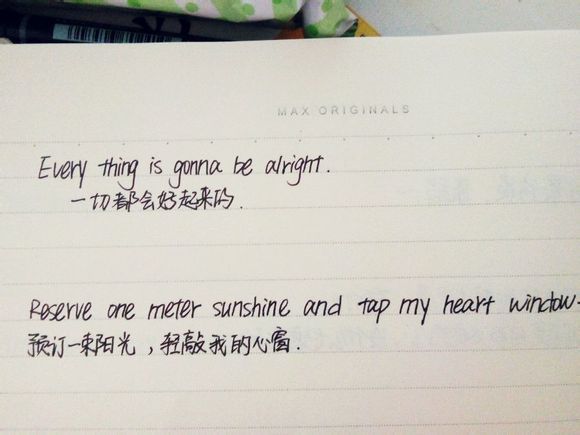 MAX ORIGINALS
Every thing is gonna be alright.
一切都会好起来的.
Reserve one meter sunshine and tap my heart window.
预订一束阳光，轻敲我的心窗.